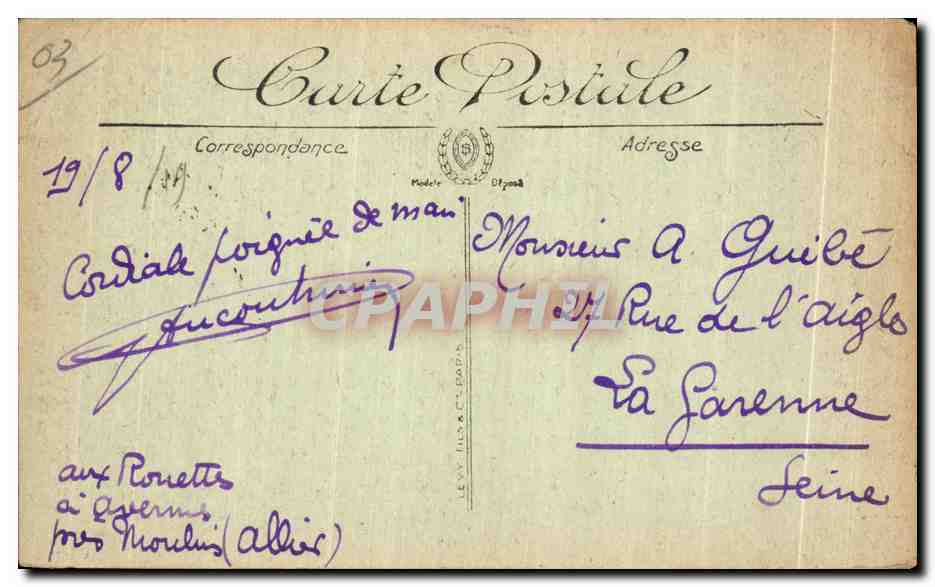 03
Carte Postale
Correspondance
Adresse
Modèle Déposé
19/8
Cordiale poignée de main
Monsieur A. Guibé
27 Rue de l'Aigle
La Garenne
Seine
aux Rouettes
à Avermes
près Moulins (Allier)
LEVY FILS & Cie PARIS
CPAPHIL